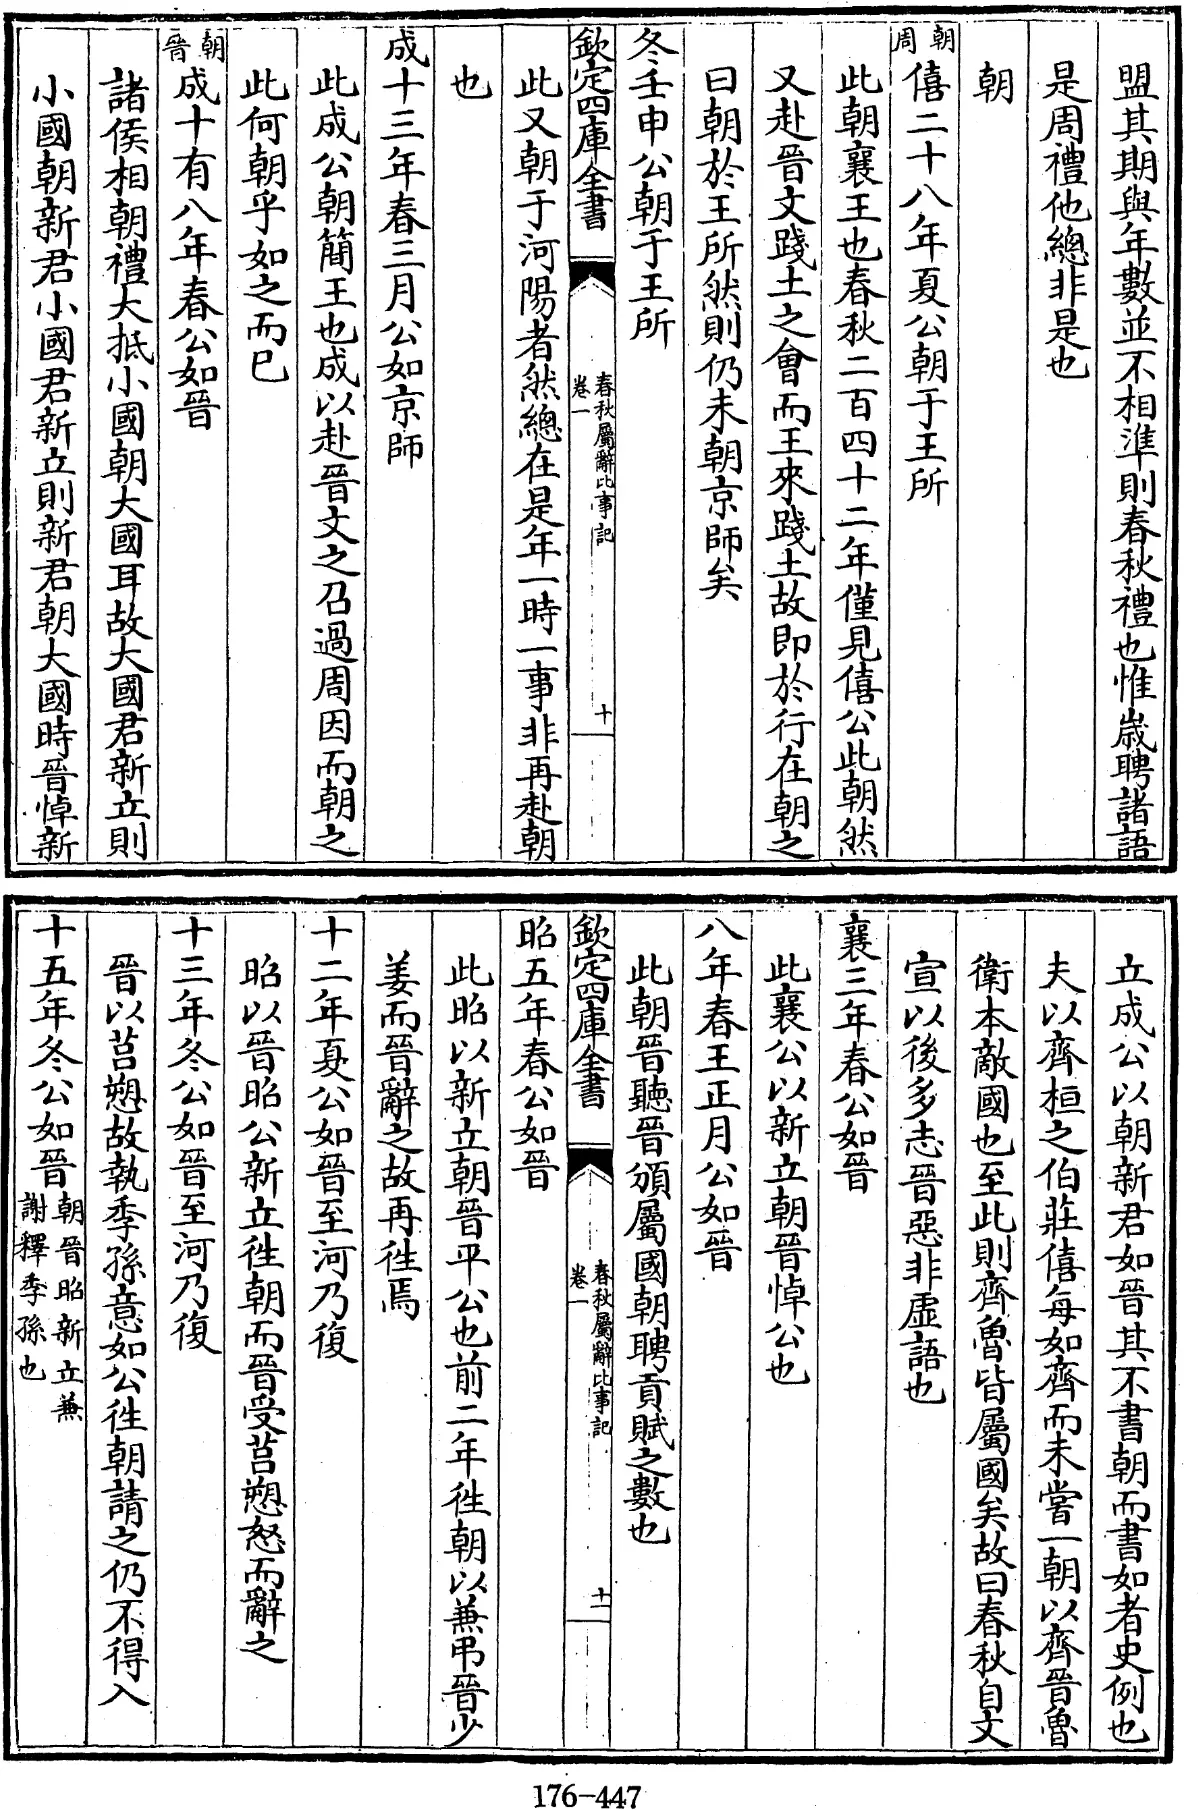 盟其期與年數並不相準則春秋禮也惟歲聘諸語
是周禮他總非是也
朝
朝周
僖二十八年夏公朝于王所
此朝襄王也春秋二百四十二年僅見僖公此朝然
又赴晉文踐土之會而王來踐土故即於行在朝之
曰朝於王所然則仍未朝京師矣
冬壬申公朝于王所
欽定四庫全書
春秋屬辭比事記
卷一
十
此又朝于河陽者然總在是年一時一事非再赴朝
也
成十三年春三月公如京師
此成公朝簡王也成以赴晉文之召過周因而朝之
此何朝乎如之而已
朝晉
成十有八年春公如晉
諸侯相朝禮大抵小國朝大國耳故大國君新立則
小國朝新君小國君新立則新君朝大國時晉悼新
立成公以朝新君如晉其不書朝而書如者史例也
夫以齊桓之伯莊僖每如齊而未嘗一朝以齊晉魯
衛本敵國也至此則齊魯皆屬國矣故曰春秋自文
宣以後多志晉惡非虛語也
襄三年春公如晉
此襄公以新立朝晉悼公也
八年春王正月公如晉
此朝晉聽晉頒屬國朝聘貢賦之數也
欽定四庫全書
春秋屬辭比事記
卷一
十一
昭五年春公如晉
此昭以新立朝晉平公也前二年徃朝以兼弔晉少
姜而晉辭之故再徃焉
十二年夏公如晉至河乃復
昭以晉昭公新立徃朝而晉受莒愬怒而辭之
十三年冬公如晉至河乃復
晉以莒愬故執季孫意如公徃朝請之仍不得入
十五年冬公如晉
朝晉昭新立兼
謝釋季孫也
176-447